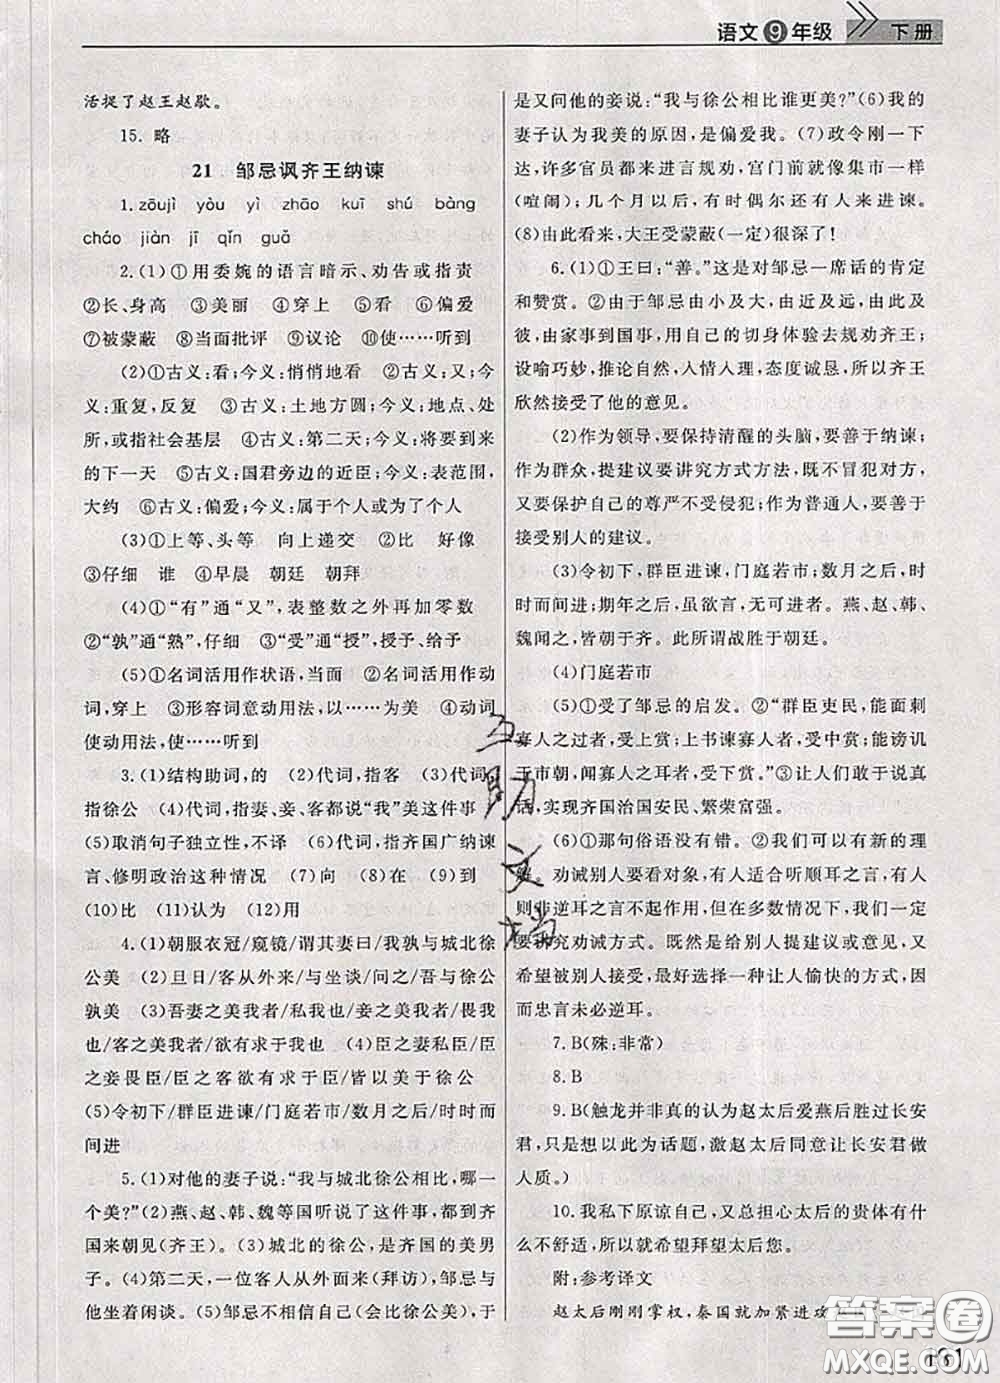 语文9年级
下册
活捉了赵王赵歇。
15. 略
21 邹忌讽齐王纳谏
1. zōujì yòu yì zhāo kuī shú bàng
cháo jiàn jī qǐn guǎ
2. (1)①用委婉的语言暗示、劝告或指责
②长、身高 ③美丽 ④穿上 ⑤看 ⑥偏爱
⑦被蒙蔽 ⑧当面批评 ⑨议论 ⑩使……听到
(2)①古义:看;今义:悄悄地看 ②古义:又;今
义:重复,反复 ③古义:土地方圆;今义:地点、处
所,或指社会基层 ④古义:第二天;今义:将要到来
的下一天 ⑤古义:国君旁边的近臣;今义:表范围,
大约 ⑥古义:偏爱;今义:属于个人或为了个人
(3)①上等、头等 向上递交 ②比 好像
③仔细 谁 ④早晨 朝廷 朝拜
(4)①“有”通“又”,表整数之外再加零数
②“孰”通“熟”,仔细 ③“受”通“授”,授予、给予
(5)①名词活用作状语,当面 ②名词活用作动
词,穿上 ③形容词意动用法,以……为美 ④动词
使动用法,使……听到
3. (1)结构助词,的 (2)代词,指客 (3)代词,
指徐公 (4)代词,指妻、妾、客都说“我”美这件事
(5)取消句子独立性,不译 (6)代词,指齐国广纳谏
言、修明政治这种情况 (7)向 (8)在 (9)到
(10)比 (11)认为 (12)用
4. (1)朝服衣冠/窥镜/谓其妻曰/我孰与城北徐
公美 (2)旦日/客从外来/与坐谈/问之/吾与徐公
孰美 (3)吾妻之美我者/私我也/妾之美我者/畏我
也/客之美我者/欲有求于我也 (4)臣之妻私臣/臣
之妾畏臣/臣之客欲有求于臣/皆以美于徐公
(5)令初下/群臣进谏/门庭若市/数月之后/时时而
间进
5. (1)对他的妻子说:“我与城北徐公相比,哪一
个美?”(2)燕、赵、韩、魏等国听说了这件事,都到齐
国来朝见(齐王)。(3)城北的徐公,是齐国的美男
子。(4)第二天,一位客人从外面来(拜访),邹忌与
他坐着闲谈。(5)邹忌不相信自己(会比徐公美),于
是又问他的妾说:“我与徐公相比谁更美?”(6)我的
妻子认为我美的原因,是偏爱我。(7)政令刚一下
达,许多官员都来进言规劝,宫门前就像集市一样
(喧闹);几个月以后,有时偶尔还有人来进谏。
(8)由此看来,大王受蒙蔽(一定)很深了!
6. (1)①王曰:“善。”这是对邹忌一席话的肯定
和赞赏。②由于邹忌由小及大,由近及远,由此及
彼,由家事到国事,用自己的切身体验去规劝齐王,
设喻巧妙,推论自然,入情入理,态度诚恳,所以齐王
欣然接受了他的意见。
(2)作为领导,要保持清醒的头脑,要善于纳谏;
作为群众,提建议要讲究方式方法,既不冒犯对方,
又要保护自己的尊严不受侵犯;作为普通人,要善于
接受别人的建议。
(3)令初下,群臣进谏,门庭若市;数月之后,时
时而间进;期年之后,虽欲言,无可进者。燕、赵、韩、
魏闻之,皆朝于齐。此所谓战胜于朝廷。
(4)门庭若市
(5)①受了邹忌的启发。②“群臣吏民,能面刺
寡人之过者,受上赏;上书谏寡人者,受中赏;能谤讥
于市朝,闻寡人之耳者,受下赏。”③让人们敢于说真
话,实现齐国治国安民、繁荣富强。
(6)①那句俗语没有错。②我们可以有新的理
解。劝诫别人要看对象,有人适合听顺耳之言,有人
则非逆耳之言不起作用,但在多数情况下,我们大家
要讲究劝诫方式。既然是给别人提建议或意见,又
希望被别人接受,最好选择一种让人愉快的方式,因
而忠言未必逆耳。
7. B(殊:非常)
8. B
9. B(触龙并非真的认为赵太后爱燕后胜过长安
君,只是想以此为话题,激赵太后同意让长安君做
人质。)
10. 我私下原谅自己,又总担心太后的贵体有什
么不舒适,所以就希望拜望太后您。
附:参考译文
赵太后刚刚掌权,秦国就加紧进攻
互助文档
答案圈
MXQE.COM